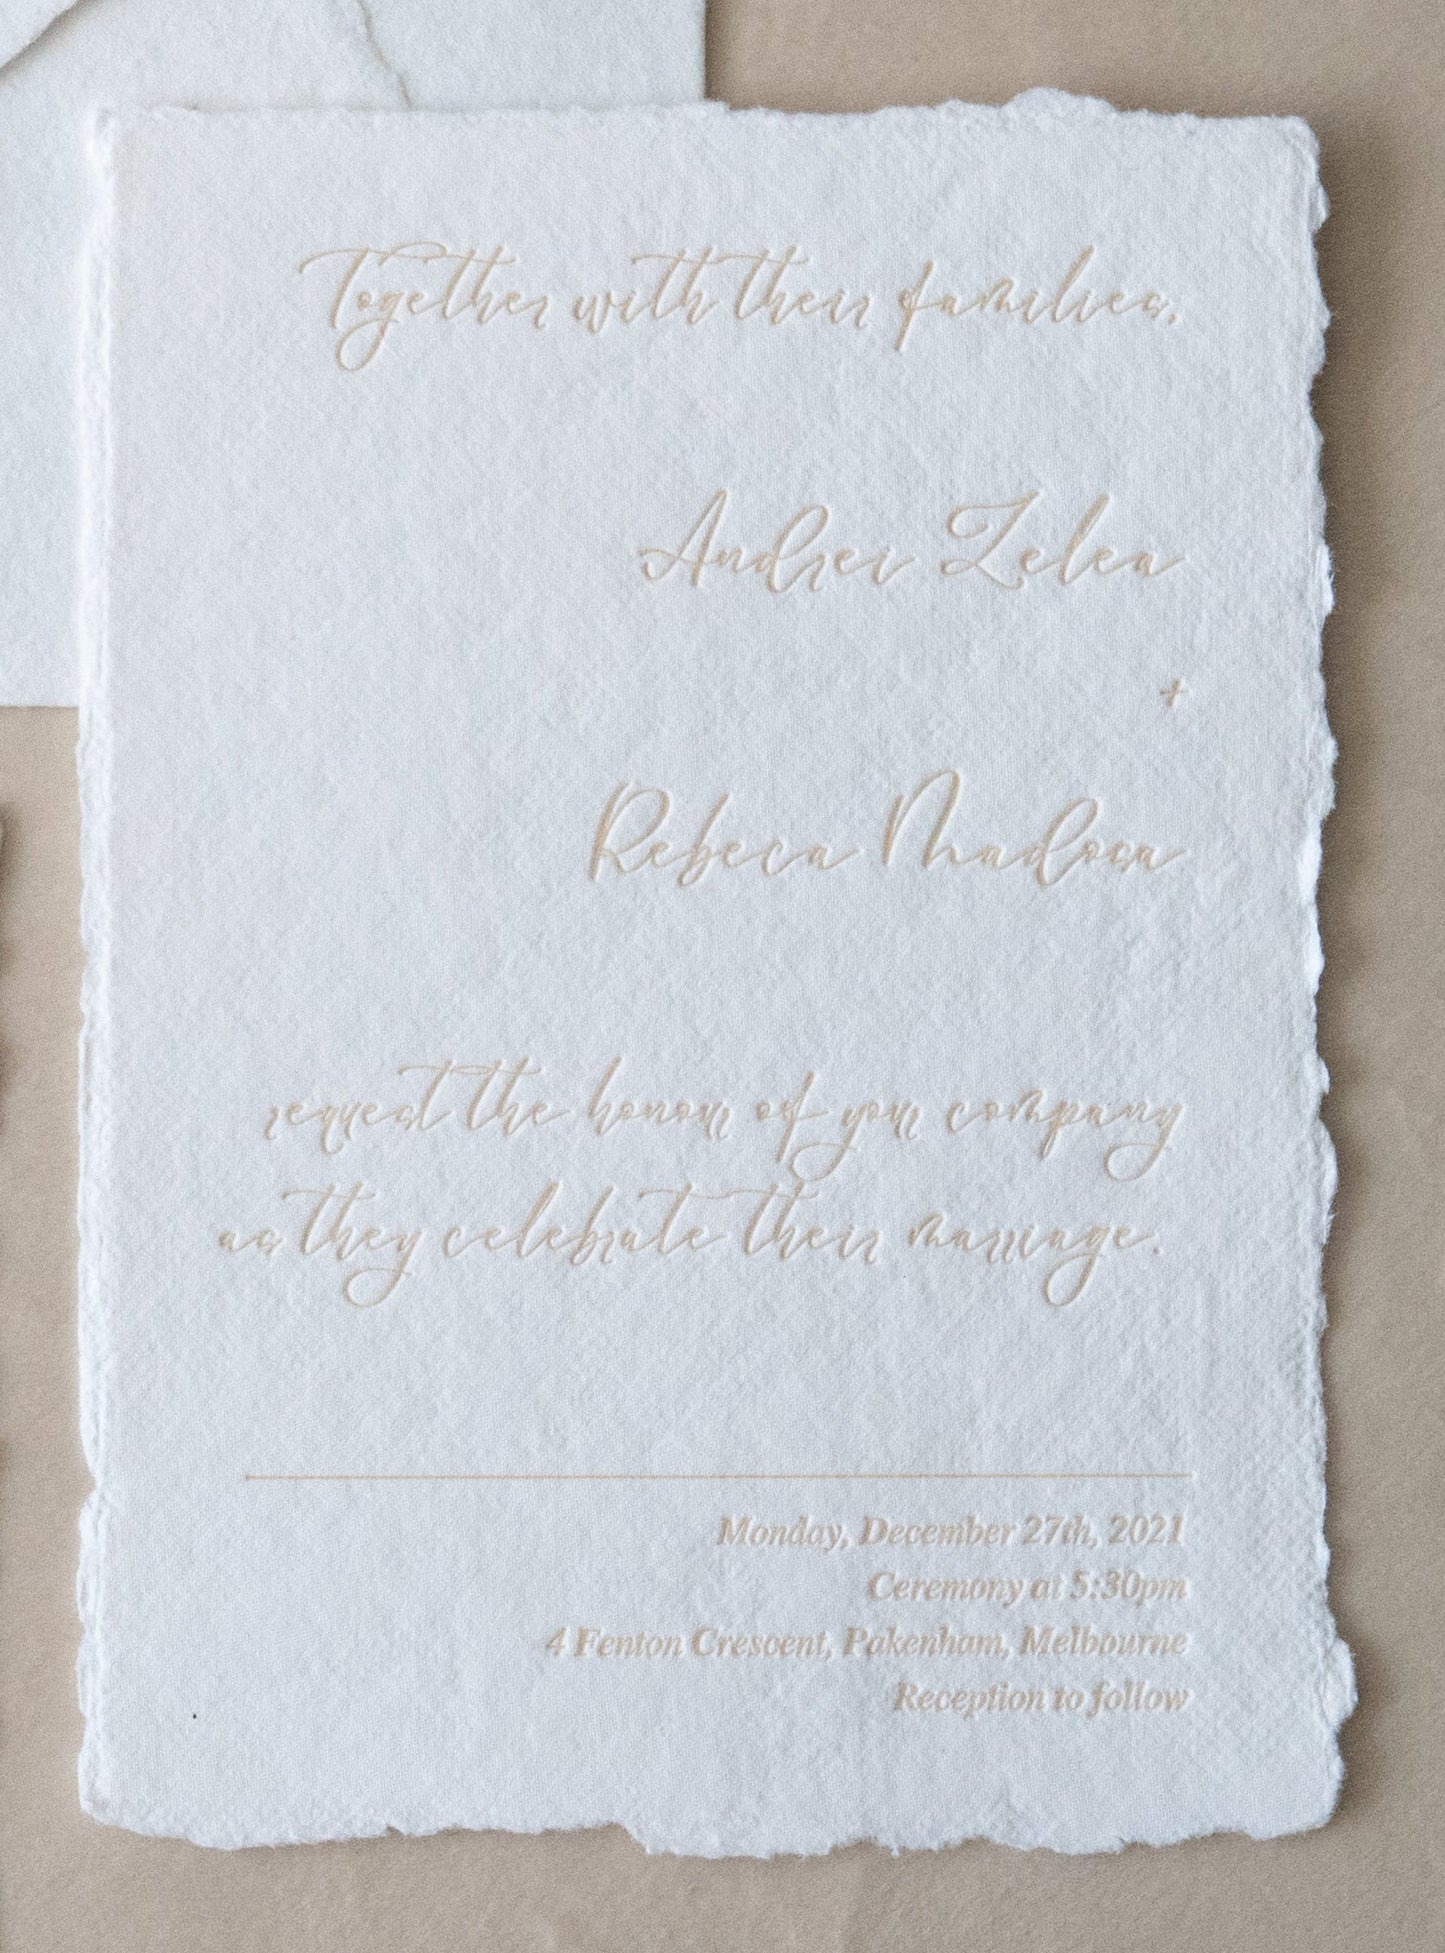 Together with their families,
Andrei Zelea
+
Rebeca Madosa
request the honour of your company
as they celebrate their marriage.
Monday, December 27th, 2021
Ceremony at 5:30pm
4 Fenton Crescent, Pakenham, Melbourne
Reception to follow